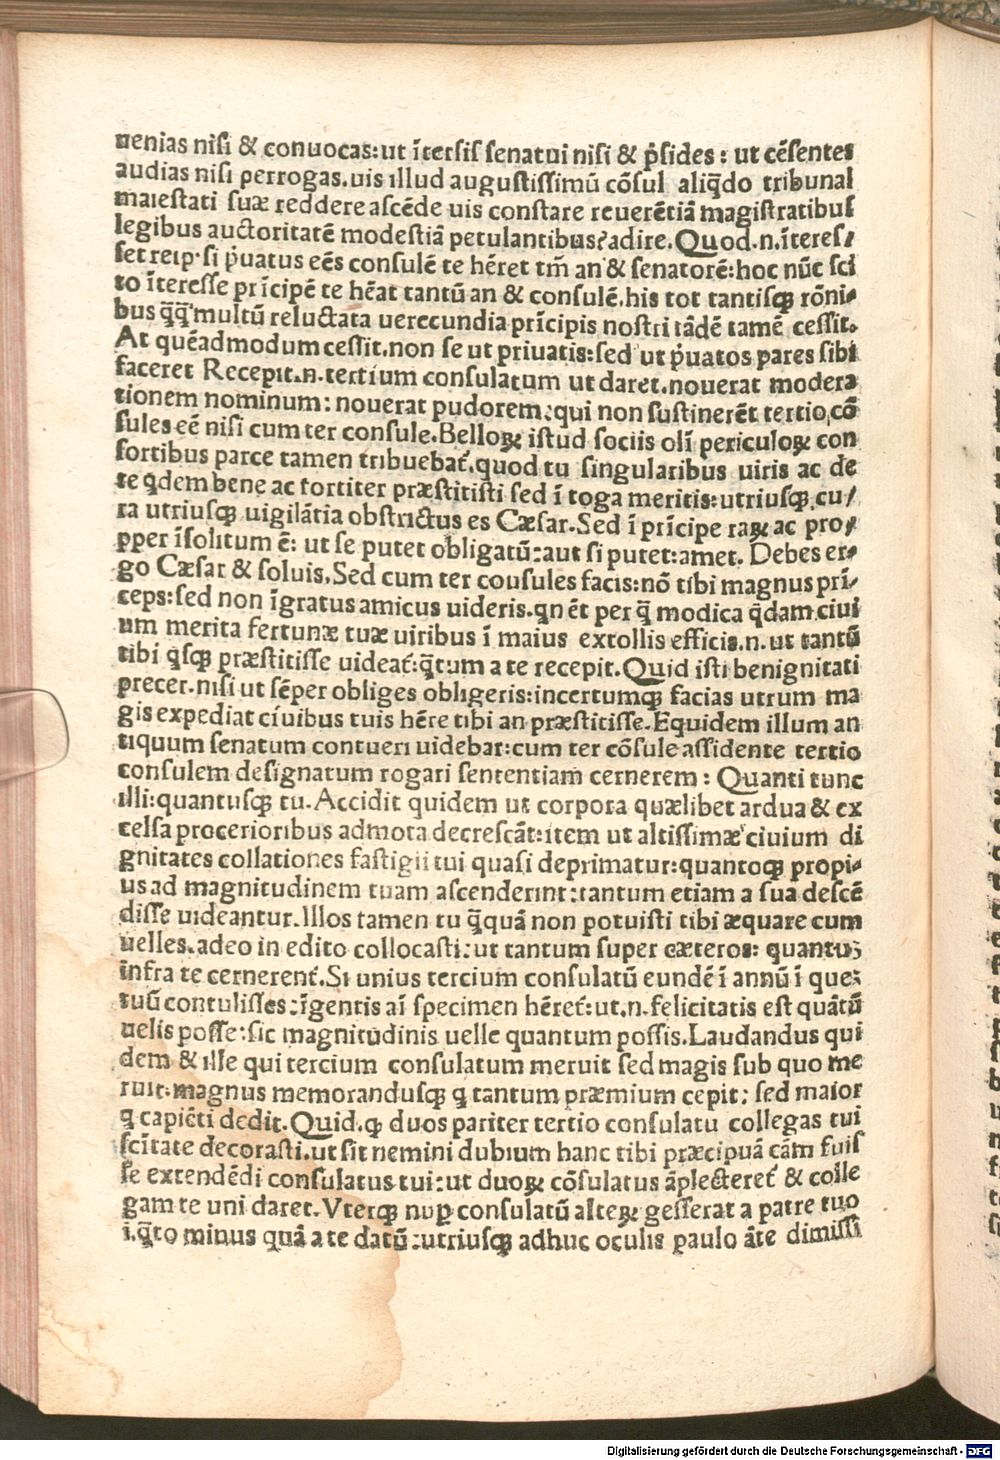 uenias nisi & conuocas: ut ītersis senatui nisi & p̄sides: ut cēsentes
audias nisi perrogas. uis illud augustissimū cōsul aliq̄do tribunal
maiestati suæ reddere ascēde uis constare reuerētiā magistratibus
legibus auctoritatē modestiā petulantibus? adire. Quod. n. īteres/
set reip. si p̄uatus eēs consulē te hēret tm̄ an & senatorē: hoc nūc sci
to īteresse prīcipē te hēat tantū an & consulē. his tot tantisꝙ rōni/
bus q̄q̄ multū reluctata uerecundia prīcipis nostri tādē tamē cessit.
At quēadmodum cessit. non se ut priuatis: sed ut p̄uatos pares sibi
faceret Recepit. n. tertium consulatum ut daret. nouerat modera
tionem nominum: nouerat pudorem: qui non sustinerēt tertio cō
sules eē nisi cum ter consule. Belloꝝ istud sociis olī periculoꝝ con
sortibus parce tamen tribuebat̄. quod tu singularibus uiris ac de
te q̄dem bene ac fortiter præstitisti sed ī toga meritis: utriusꝙ cu/
ra utriusꝙ uigilātia obstrictus es Cæsar. Sed ī prīcipe raꝝ ac pro/
ꝓper īsolitum ē: ut se putet obligatū: aut si putet: amet. Debes er/
go Cæsar & soluis. Sed cum ter cousules facis: nō tibi magnus prī/
ceps: sed non īgratus amicus uideris. qn ēt per q̄ modica q̄dam ciui
um merita fertunæ tuæ uiribus ī maius extollis efficis. n. ut tantū
tibi q̄sꝙ præstitisse uideat̄: q̄tum a te recepit. Quid isti benignitati
precer. nisi ut sēper obliges obligeris: incertumꝙ facias utrum ma
gis expediat ciuibus tuis hēre tibi an præstitisse. Equidem illum an
tiquum senatum contueri uidebar: cum ter cōsule assidente tertio
consulem designatum rogari sententiam cernerem: Quanti tunc
illi: quantusꝙ tu. Accidit quidem ut corpora quælibet ardua & ex
celsa procerioribus admota decrescāt: item ut altissimæ ciuium di
gnitates collationes fastigii tui quasi deprimatur: quantoꝙ propi/
us ad magnitudinem tuam ascenderint: tantum etiam a sua descē
disse uideantur. Illos tamen tu q̄quā non potuisti tibi æquare cum
uelles. adeo in edito collocasti: ut tantum super cæteros: quantuꝫ
infra te cernerent̄. Si unius tercium consulatū eundē ī annū ī queꝫ
tuū contulisses: īgentis aī specimen hēret̄: ut. n. felicitatis est quātū
uelis posse: sic magnitudinis uelle quantum possis. Laudandus qui
dem & ille qui tercium consulatum meruit sed magis sub quo me
ruit: magnus memorandusꝙ q̄ tantum præmium cepit: sed maior
q̄ capiēti dedit. Quid. ꝙ duos pariter tertio consulatu collegas tui
scītate decorasti. ut sit nemini dubium hanc tibi præcipuā cām fuis
se extendēdi consulatus tui: ut duoꝝ cōsulatus āplecteret̄ & colle
gam te uni daret. Vterꝙ nuꝑ consulatū alteꝝ gesserat a patre tuo
i. q̄to minus quā a te datū: utriusꝙ adhuc oculis paulo āte dimissi
Digitalisierung gefördert durch die Deutsche Forschungsgemeinschaft - DFG